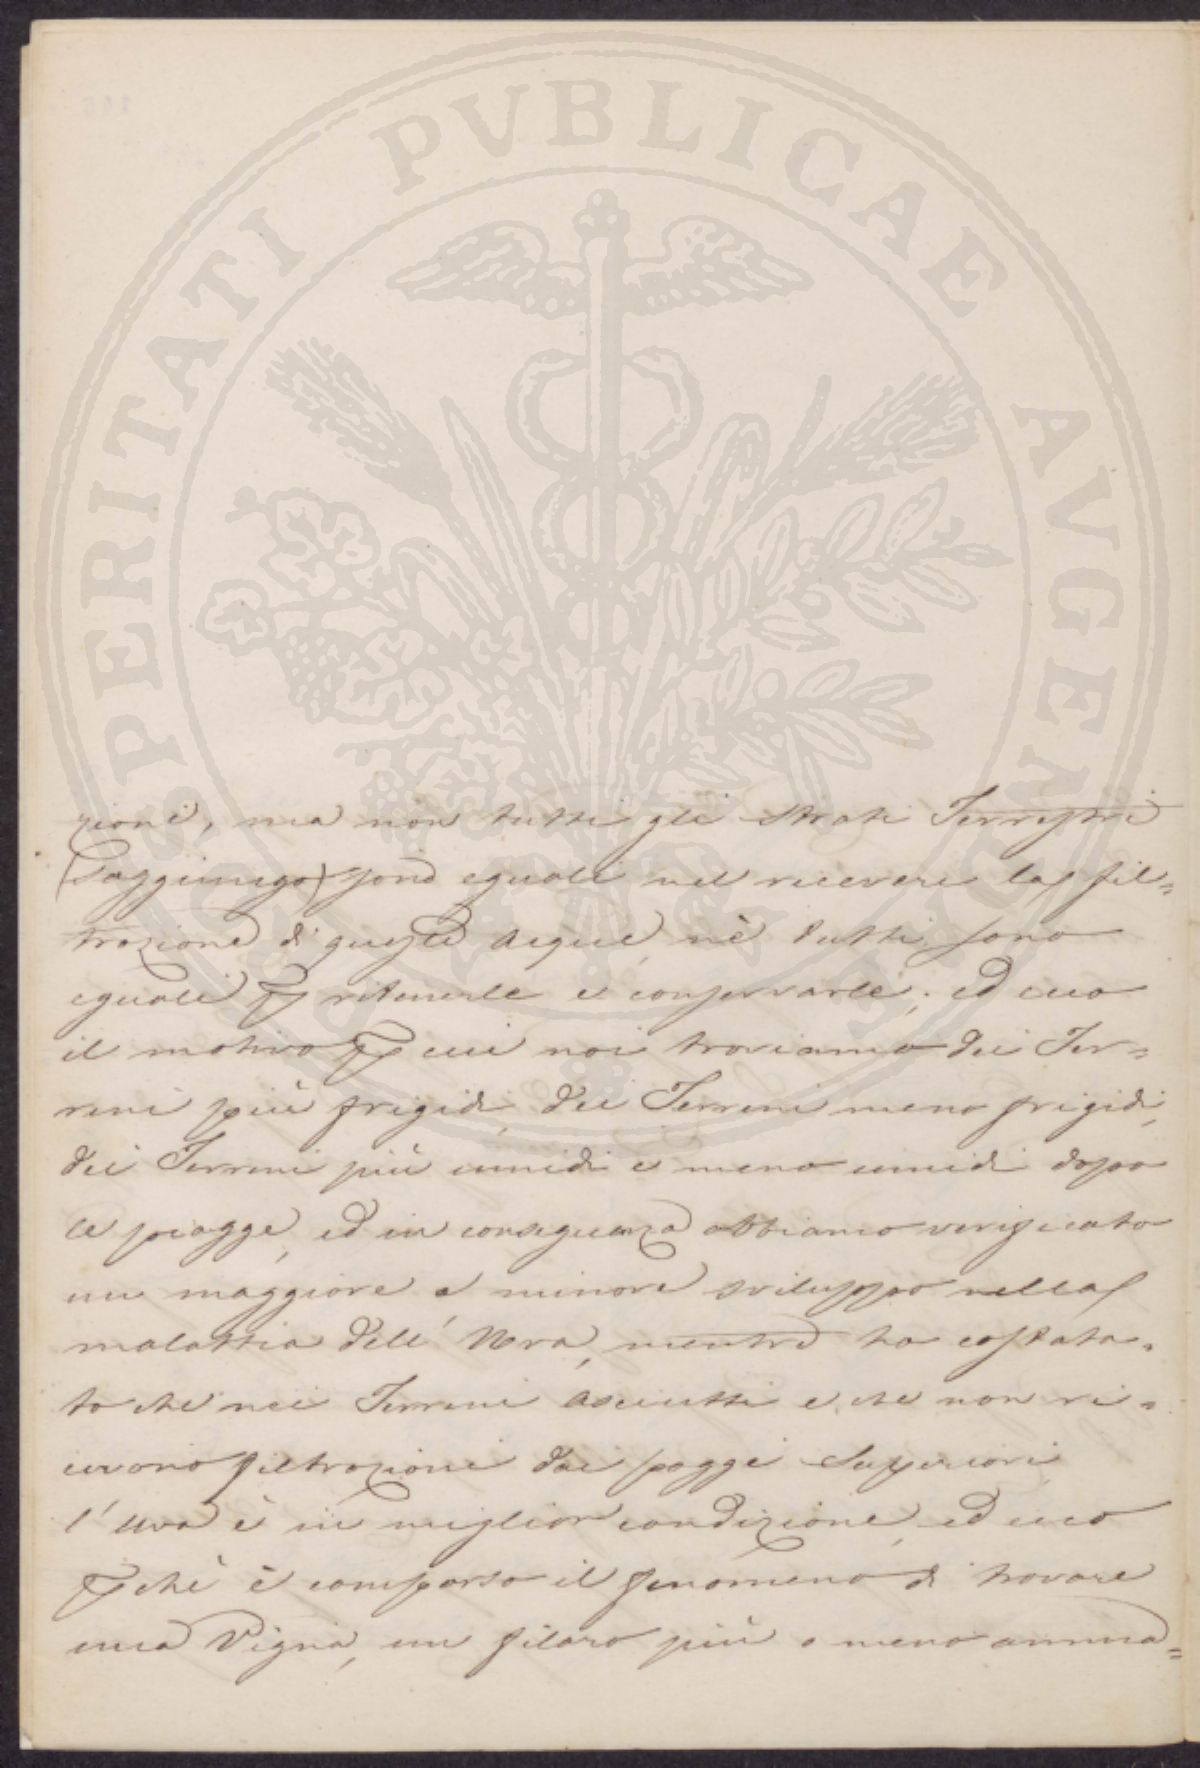 PROSPERITATI PUBLICAE AVGENDAE
zioni, ma non tutti gli strati Terrestri
(soggiungo) sono eguali nel ricevere la fil=
trazione di queste Acque, nè tutti sono
eguali per ritenerle e conservarle; ed ecco
il motivo per cui noi troviamo dei Ter=
reni più frigidi, dei Terreni meno frigidi,
dei Terreni più umidi e meno umidi dopo
le piogge, ed in conseguenza abbiamo verificato
un maggiore o minore sviluppo nella
malattia dell'Uva, mentre ho costata=
to che nei Terreni asciutti e che non ri=
cevono filtrazioni dai poggi superiori
l'uva è in miglior condizione, ed ecco
perchè è comparso il fenomeno di trovare
una Vigna, un filaro più o meno amma=